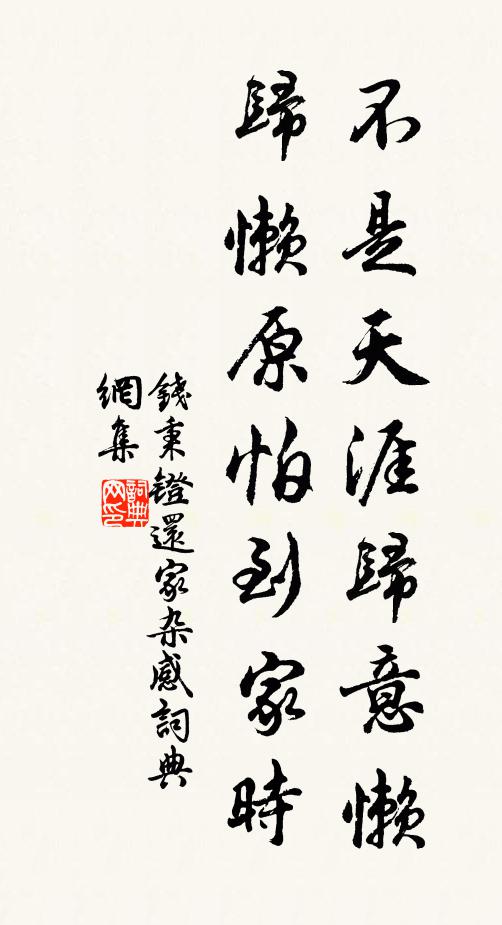 不是天涯歸意懶
歸懶原怕到家時
錢秉鐙還家杂感詞典
網集
詞典
网印